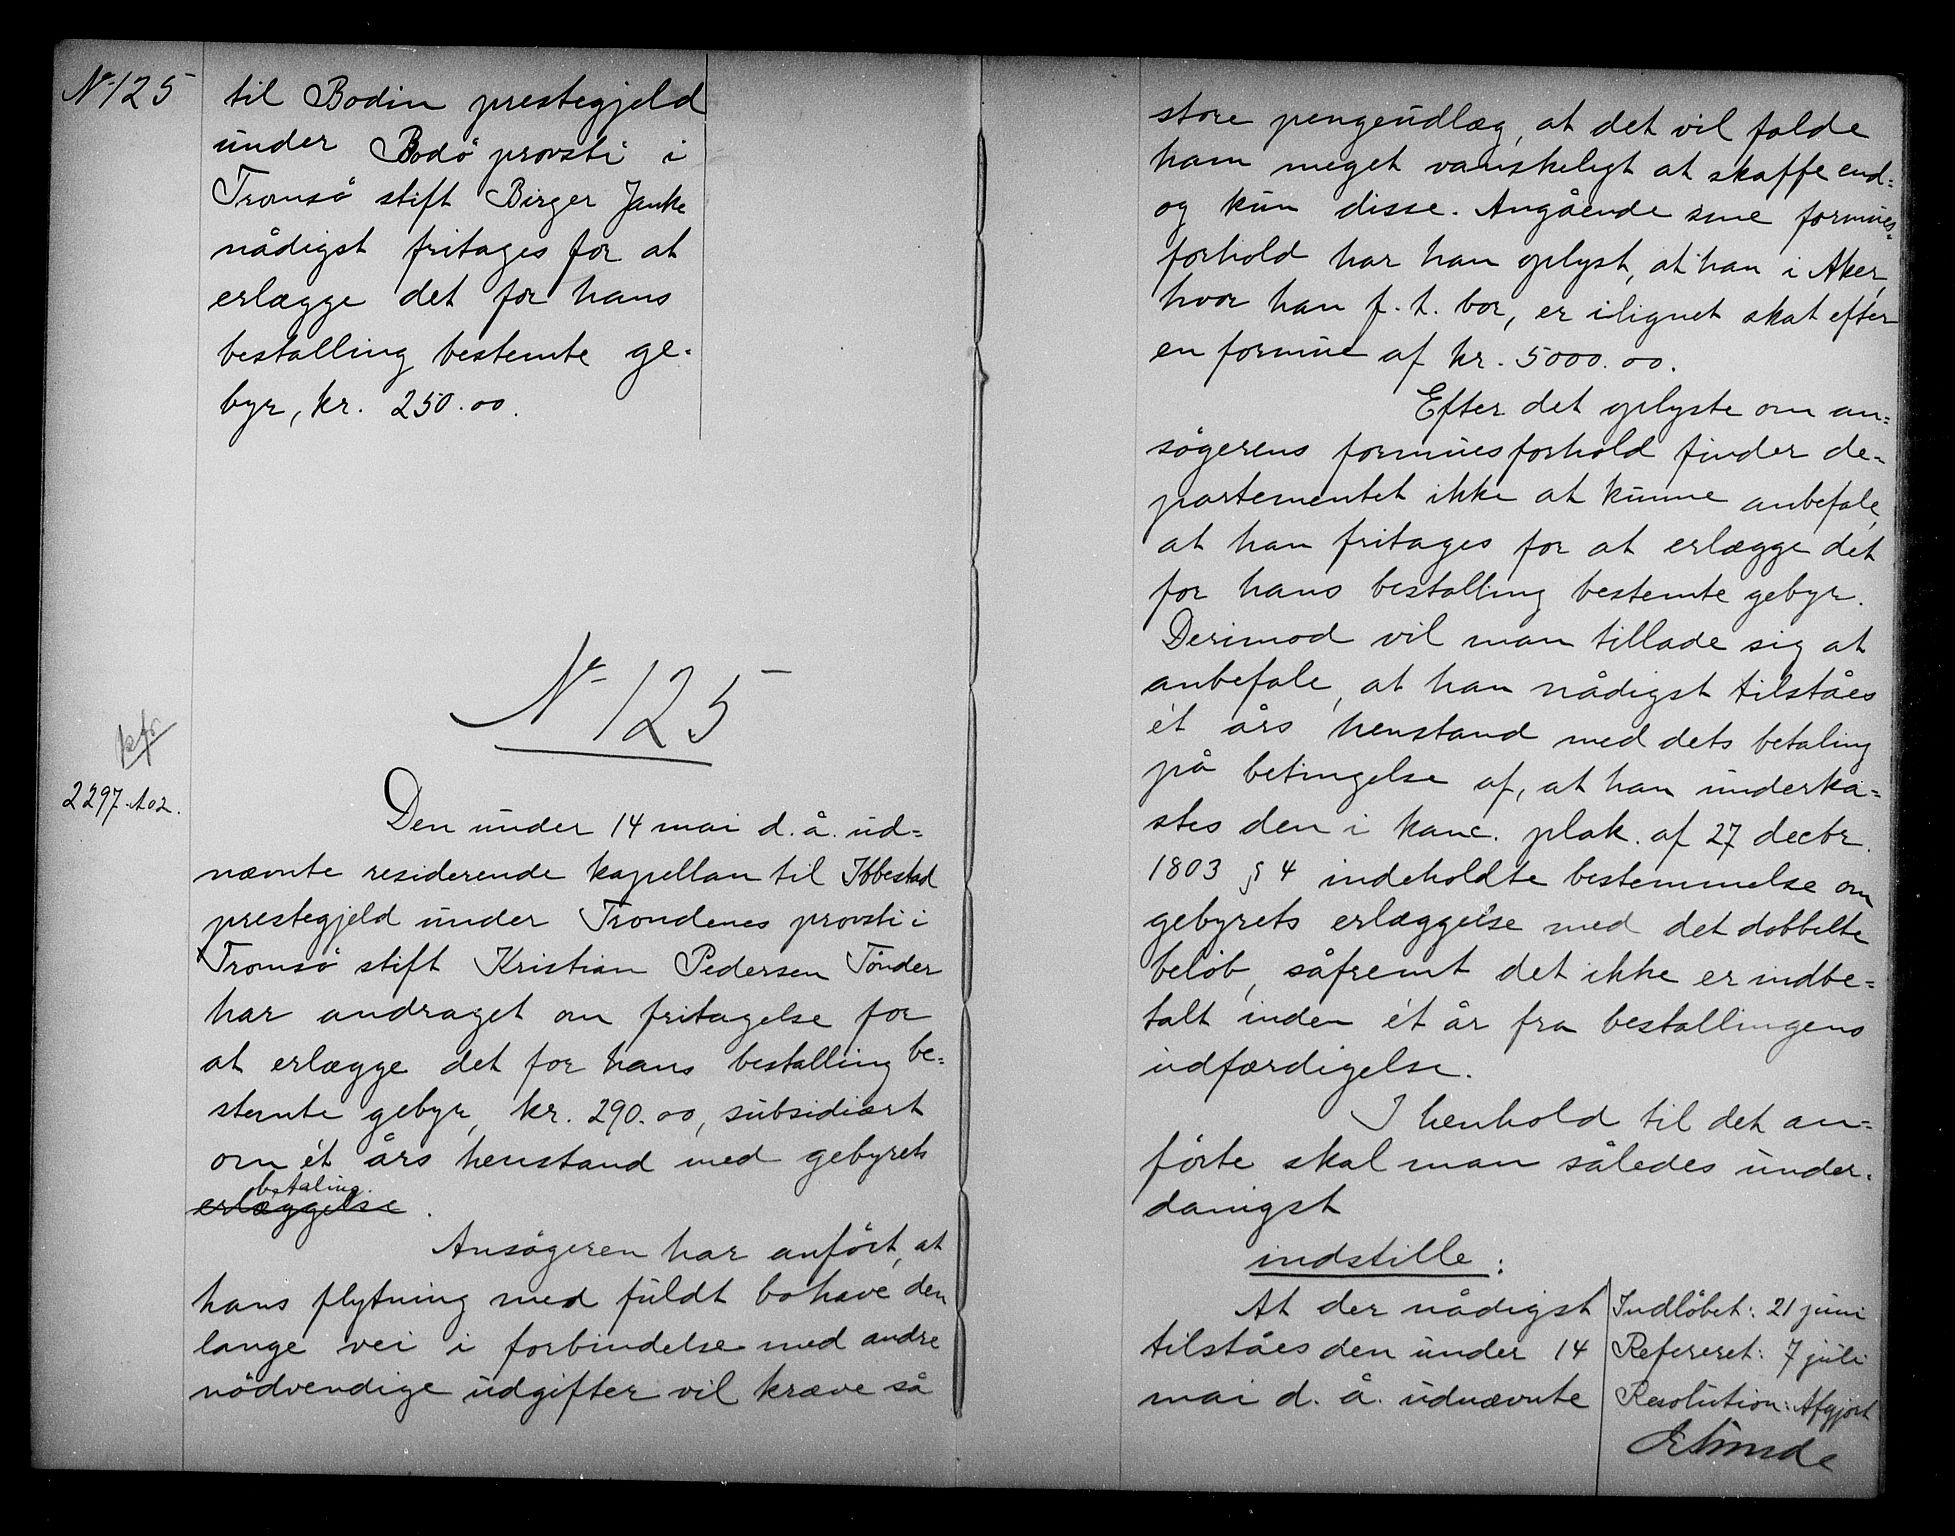 No 125
til Bodin prestegjeld
under Bodö provsti i
Tromsö stift Birger Janke
nådigst fritages for at
erlægge det for hans
bestalling bestemte ge-
byr, kr. 250.00.
No 125
2297 A02.
Den under 14 mai d. å. ud=
nævnte residerende kapellan til Ibbestad
prestegjeld under Trondenes provsti i
Tromsö stift Kristian Pedersen Tönder
har andraget om fritagelse for
at erlægge det for hans bestalling be=
stemte gebyr, kr. 290.00, subsidiært
om ét års henstand med gebyrets
betaling
erlæggelse.
Ansögeren har anfört, at
hans flytning med fuldt bohave den
lange vei i forbindelse med andre
nödvendige udgifter vil kræve så
store pengeudlæg, at det vil falde
ham meget vanskeligt at skaffe end=
og kun disse. Angående sine formues=
forhold har han oplyst, at han i Aker,
hvor han f. t. bor, er ilignet skat efter
en formue af kr. 5000.00.
Efter det oplyste om an=
sögerens formuesforhold finder de=
partementet ikke at kunne anbefale,
at han fritages for at erlægge det
for hans bestalling bestemte gebyr.
Derimod vil man tillade sig at
anbefale, at han nådigst tilståes
ét års henstand med dets betaling
på betingelse af, at han underka=
stes den i kanc. plak. af 27 decbr.
1803 § 4 indeholdte bestemmelse om
gebyrets erlæggelse med det dobbelte
belöb, såfremt det ikke er indbe=
talt inden ét år fra bestallingens
udfærdigelse.
I henhold til det an=
förte skal man således under-
danigst
indstille:
At der nådigst
tilståes den under 14
mai d. å. udnævnte
Indlöbet: 21 juni
Refereret: 7 juli
Resolution: Afgjort